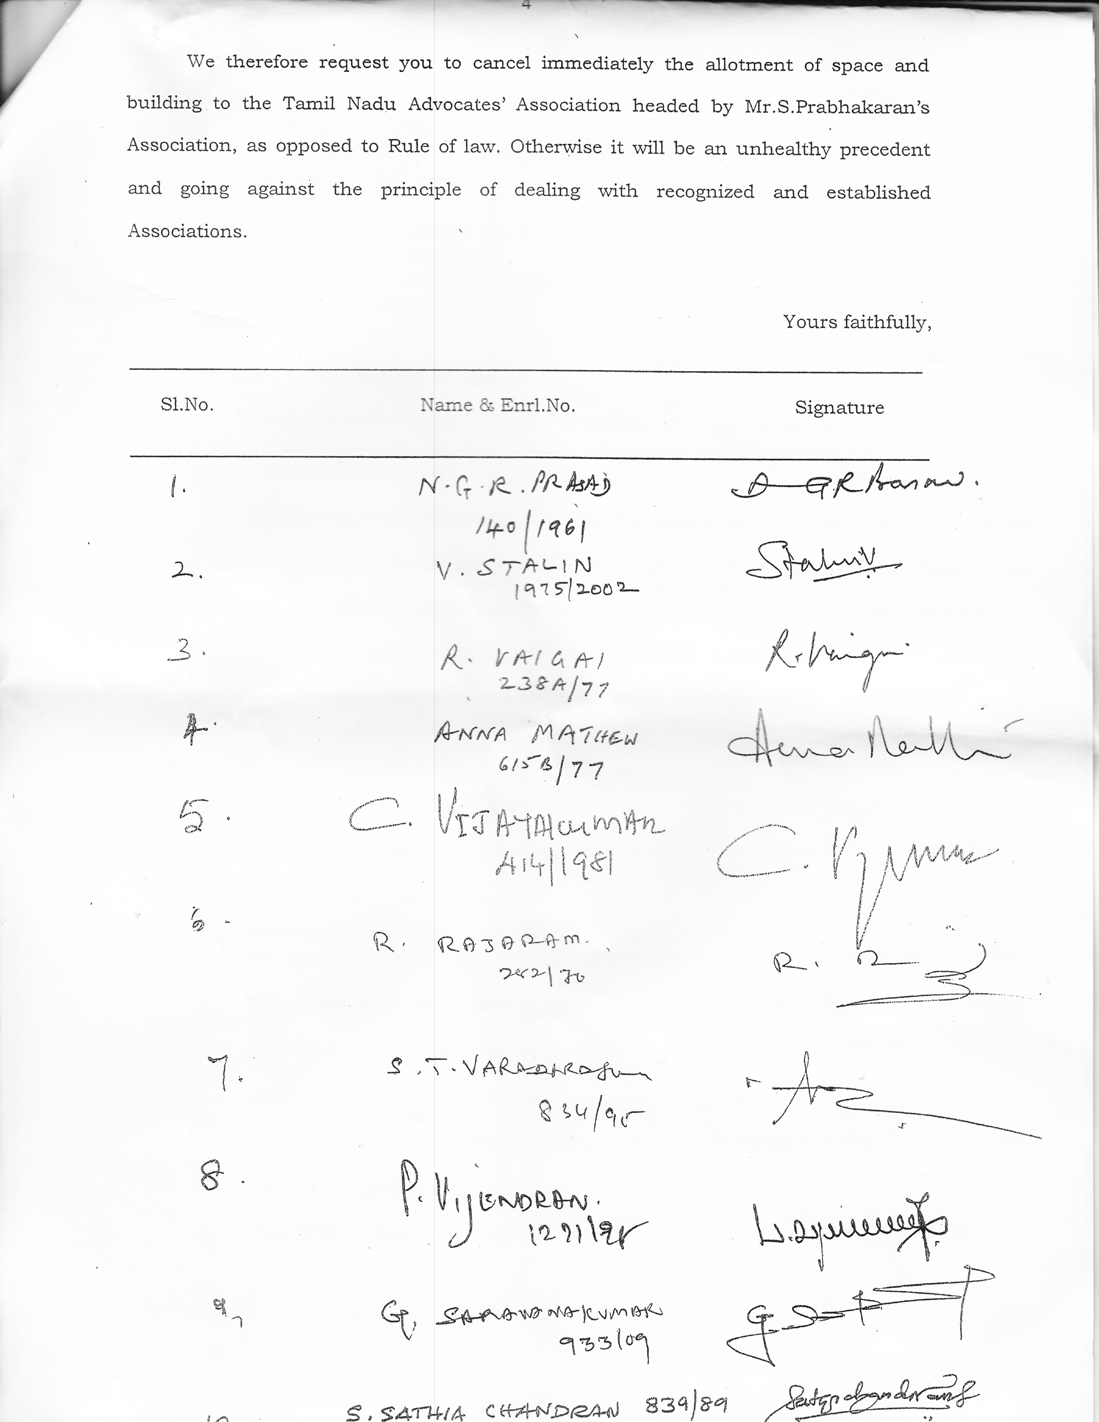 4
We therefore request you to cancel immediately the allotment of space and
building to the Tamil Nadu Advocates' Association headed by Mr.S.Prabhakaran's
Association, as opposed to Rule of law. Otherwise it will be an unhealthy precedent
and going against the principle of dealing with recognized and established
Associations.
Yours faithfully,
Sl.No. Name & Enrl.No. Signature
1. N.G.R. PRASAD
140/1961
2. V. STALIN Stalin V
1975/2002
3. R. VAIGAI R. Vaigai
238A/77
4. ANNA MATHEW Anna Mathew
615B/77
5. C. VIJAYAKUMAR
414/1981
6. R. RAJARAM.
7. S.T. VARADARAJUlu
834/95
8. P. VIJENDRAN.
9, G. SARAVANAKUMAR
933/09
10 S. SATHIA CHANDRAN 839/89